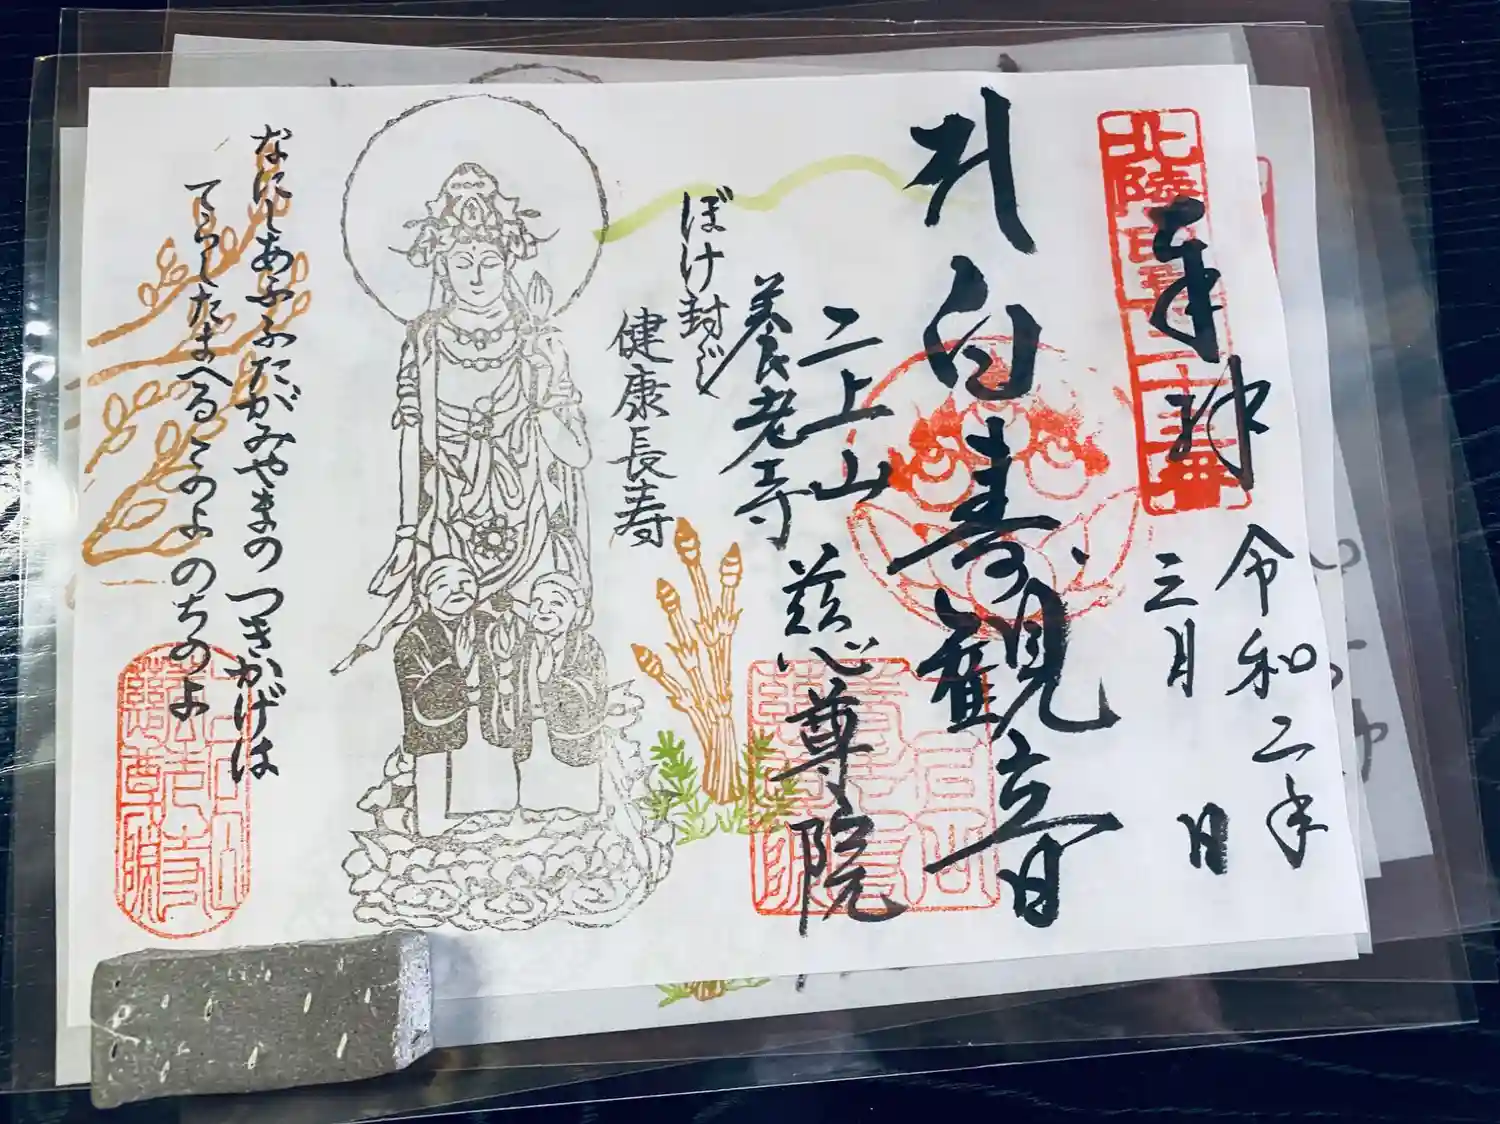 奉拝
令和二年
三月 日
白寿観音
二上山
養老寺
慈尊院
ぼけ封じ
健康長寿
なにしあふふたがみやまのつきかげは
てらしたまへるこのよのちのよ